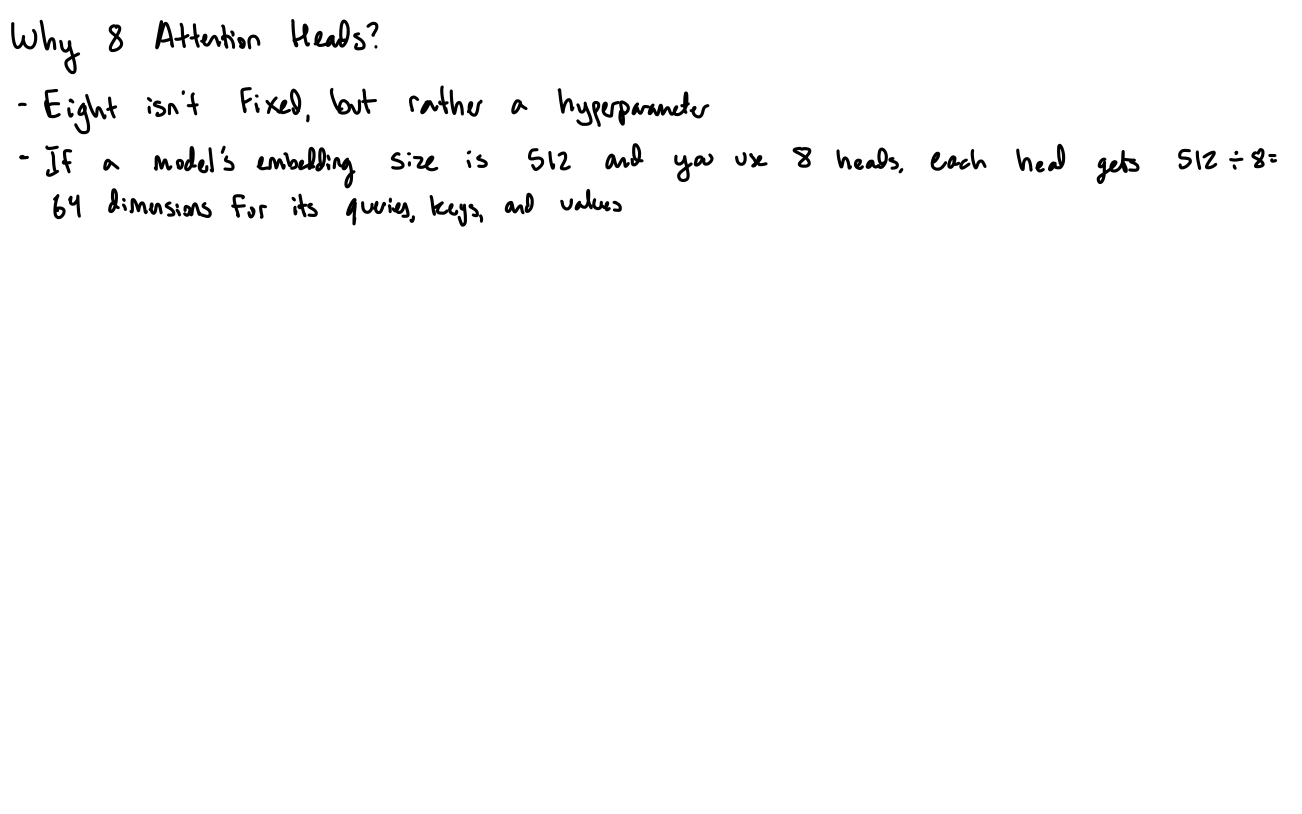 Why 8 Attention Heads?
- Eight isn't Fixed, but rather a hyperparameter
- If a model's embedding size is 512 and you use 8 heads, each head gets 512 ÷ 8=
64 dimensions for its queries, keys, and values